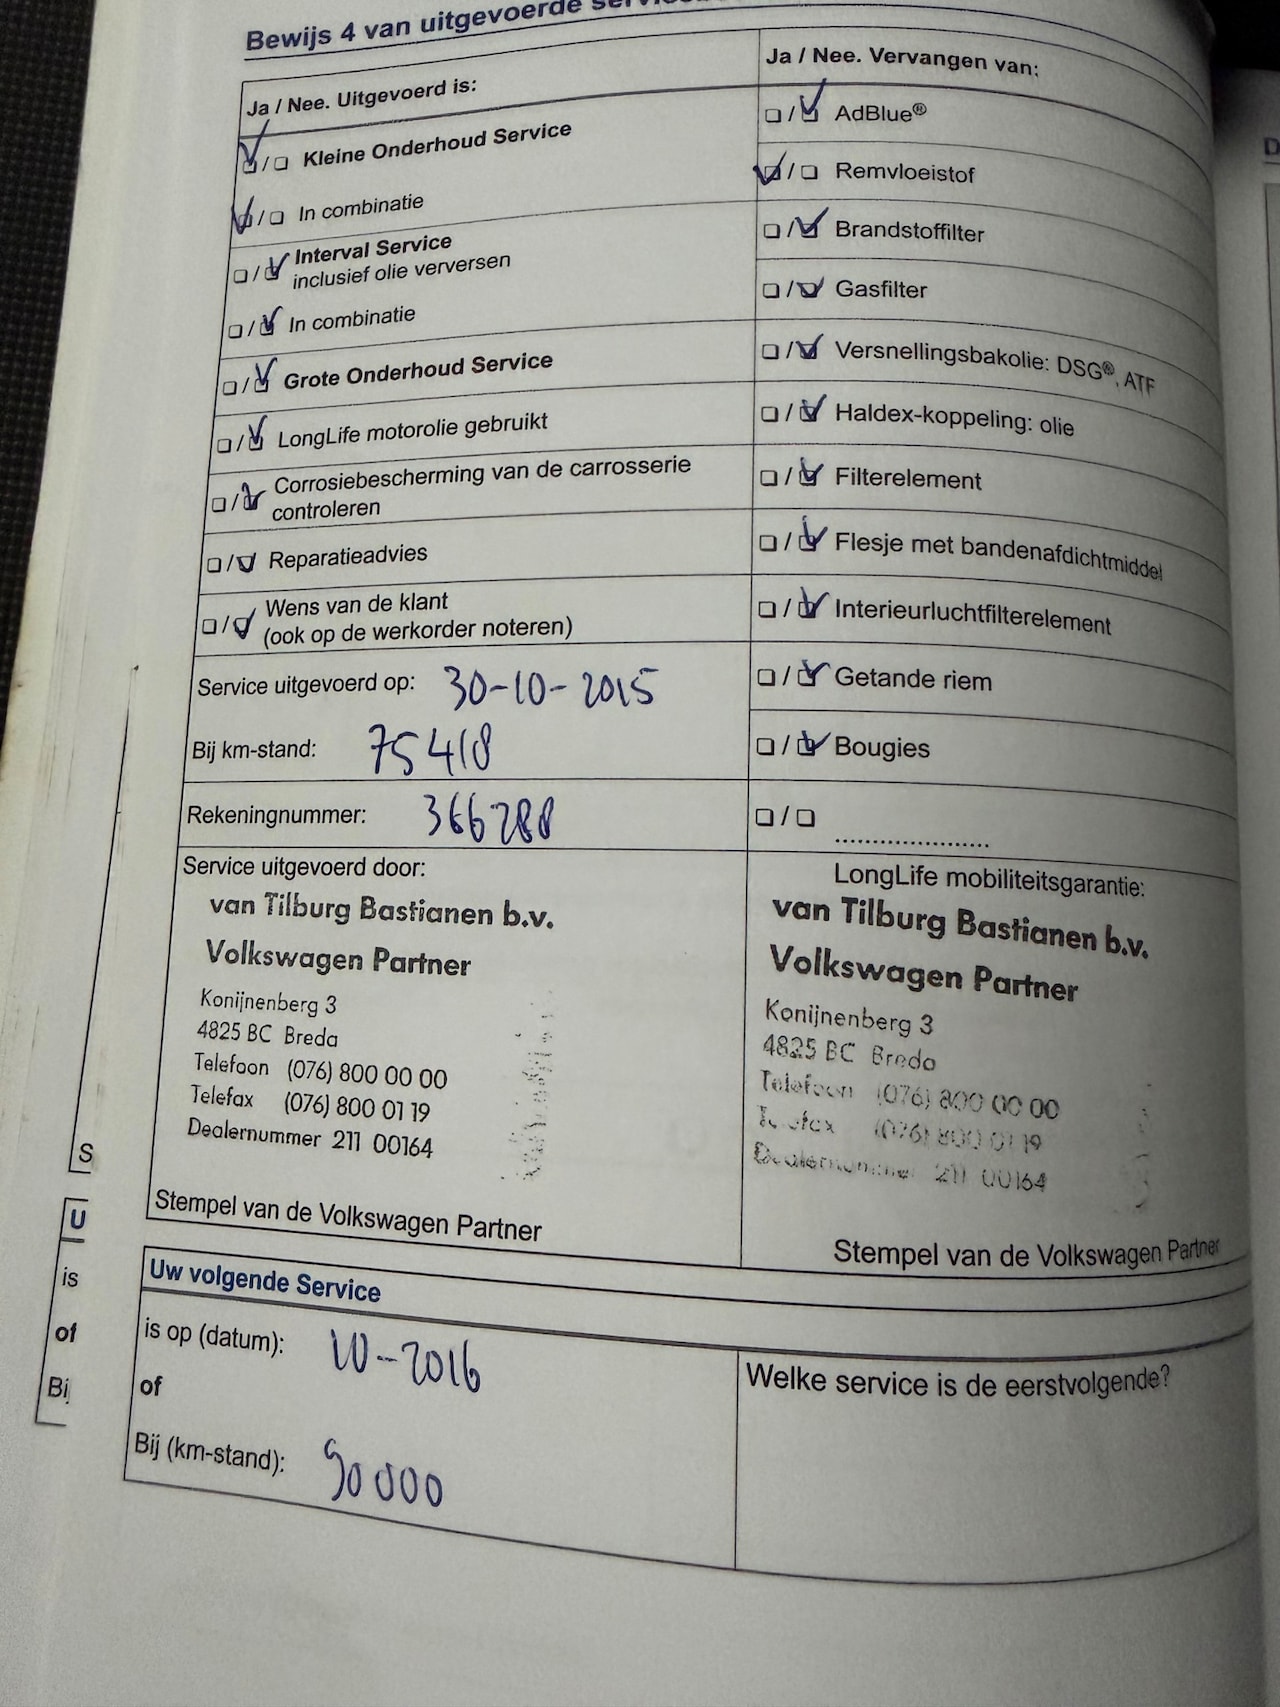 Bewijs 4 van uitgevoerde
Ja / Nee. Uitgevoerd is:
Kleine Onderhoud Service
In combinatie
Interval Service
inclusief olie verversen
In combinatie
Grote Onderhoud Service
LongLife motorolie gebruikt
Corrosiebescherming van de carrosserie
controleren
Reparatieadvies
Wens van de klant
(ook op de werkorder noteren)
Service uitgevoerd op: 30-10-2015
Bij km-stand: 75418
Rekeningnummer: 366288
Ja / Nee. Vervangen van:
AdBlue®
Remvloeistof
Brandstoffilter
Gasfilter
Versnellingsbakolie: DSG®, ATF
Haldex-koppeling: olie
Filterelement
Flesje met bandenafdichtmiddel
Interieurluchtfilterelement
Getande riem
Bougies
Service uitgevoerd door:
van Tilburg Bastianen b.v.
Volkswagen Partner
Konijnenberg 3
4825 BC Breda
Telefoon (076) 800 00 00
Telefax (076) 800 01 19
Dealernummer 211 00164
Stempel van de Volkswagen Partner
LongLife mobiliteitsgarantie:
van Tilburg Bastianen b.v.
Volkswagen Partner
Konijnenberg 3
4825 BC Breda
Telefoon (076) 800 00 00
Telefax (076) 800 01 19
Dealernummer 211 00164
Stempel van de Volkswagen Partner
Uw volgende Service
is op (datum): 10-2016
of
Bij (km-stand): 90000
Welke service is de eerstvolgende?
S
U
is
of
Bij
D